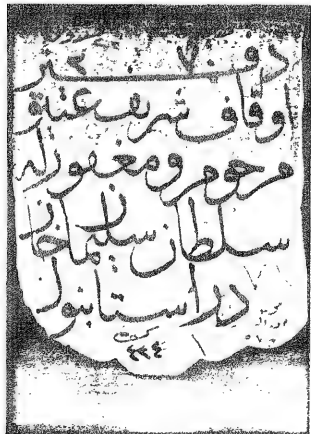 دفتر
اوقاف شريف عتيق
مرحوم و مغفورله
سلطان سليمان خان
در استانبول
٢٣٤